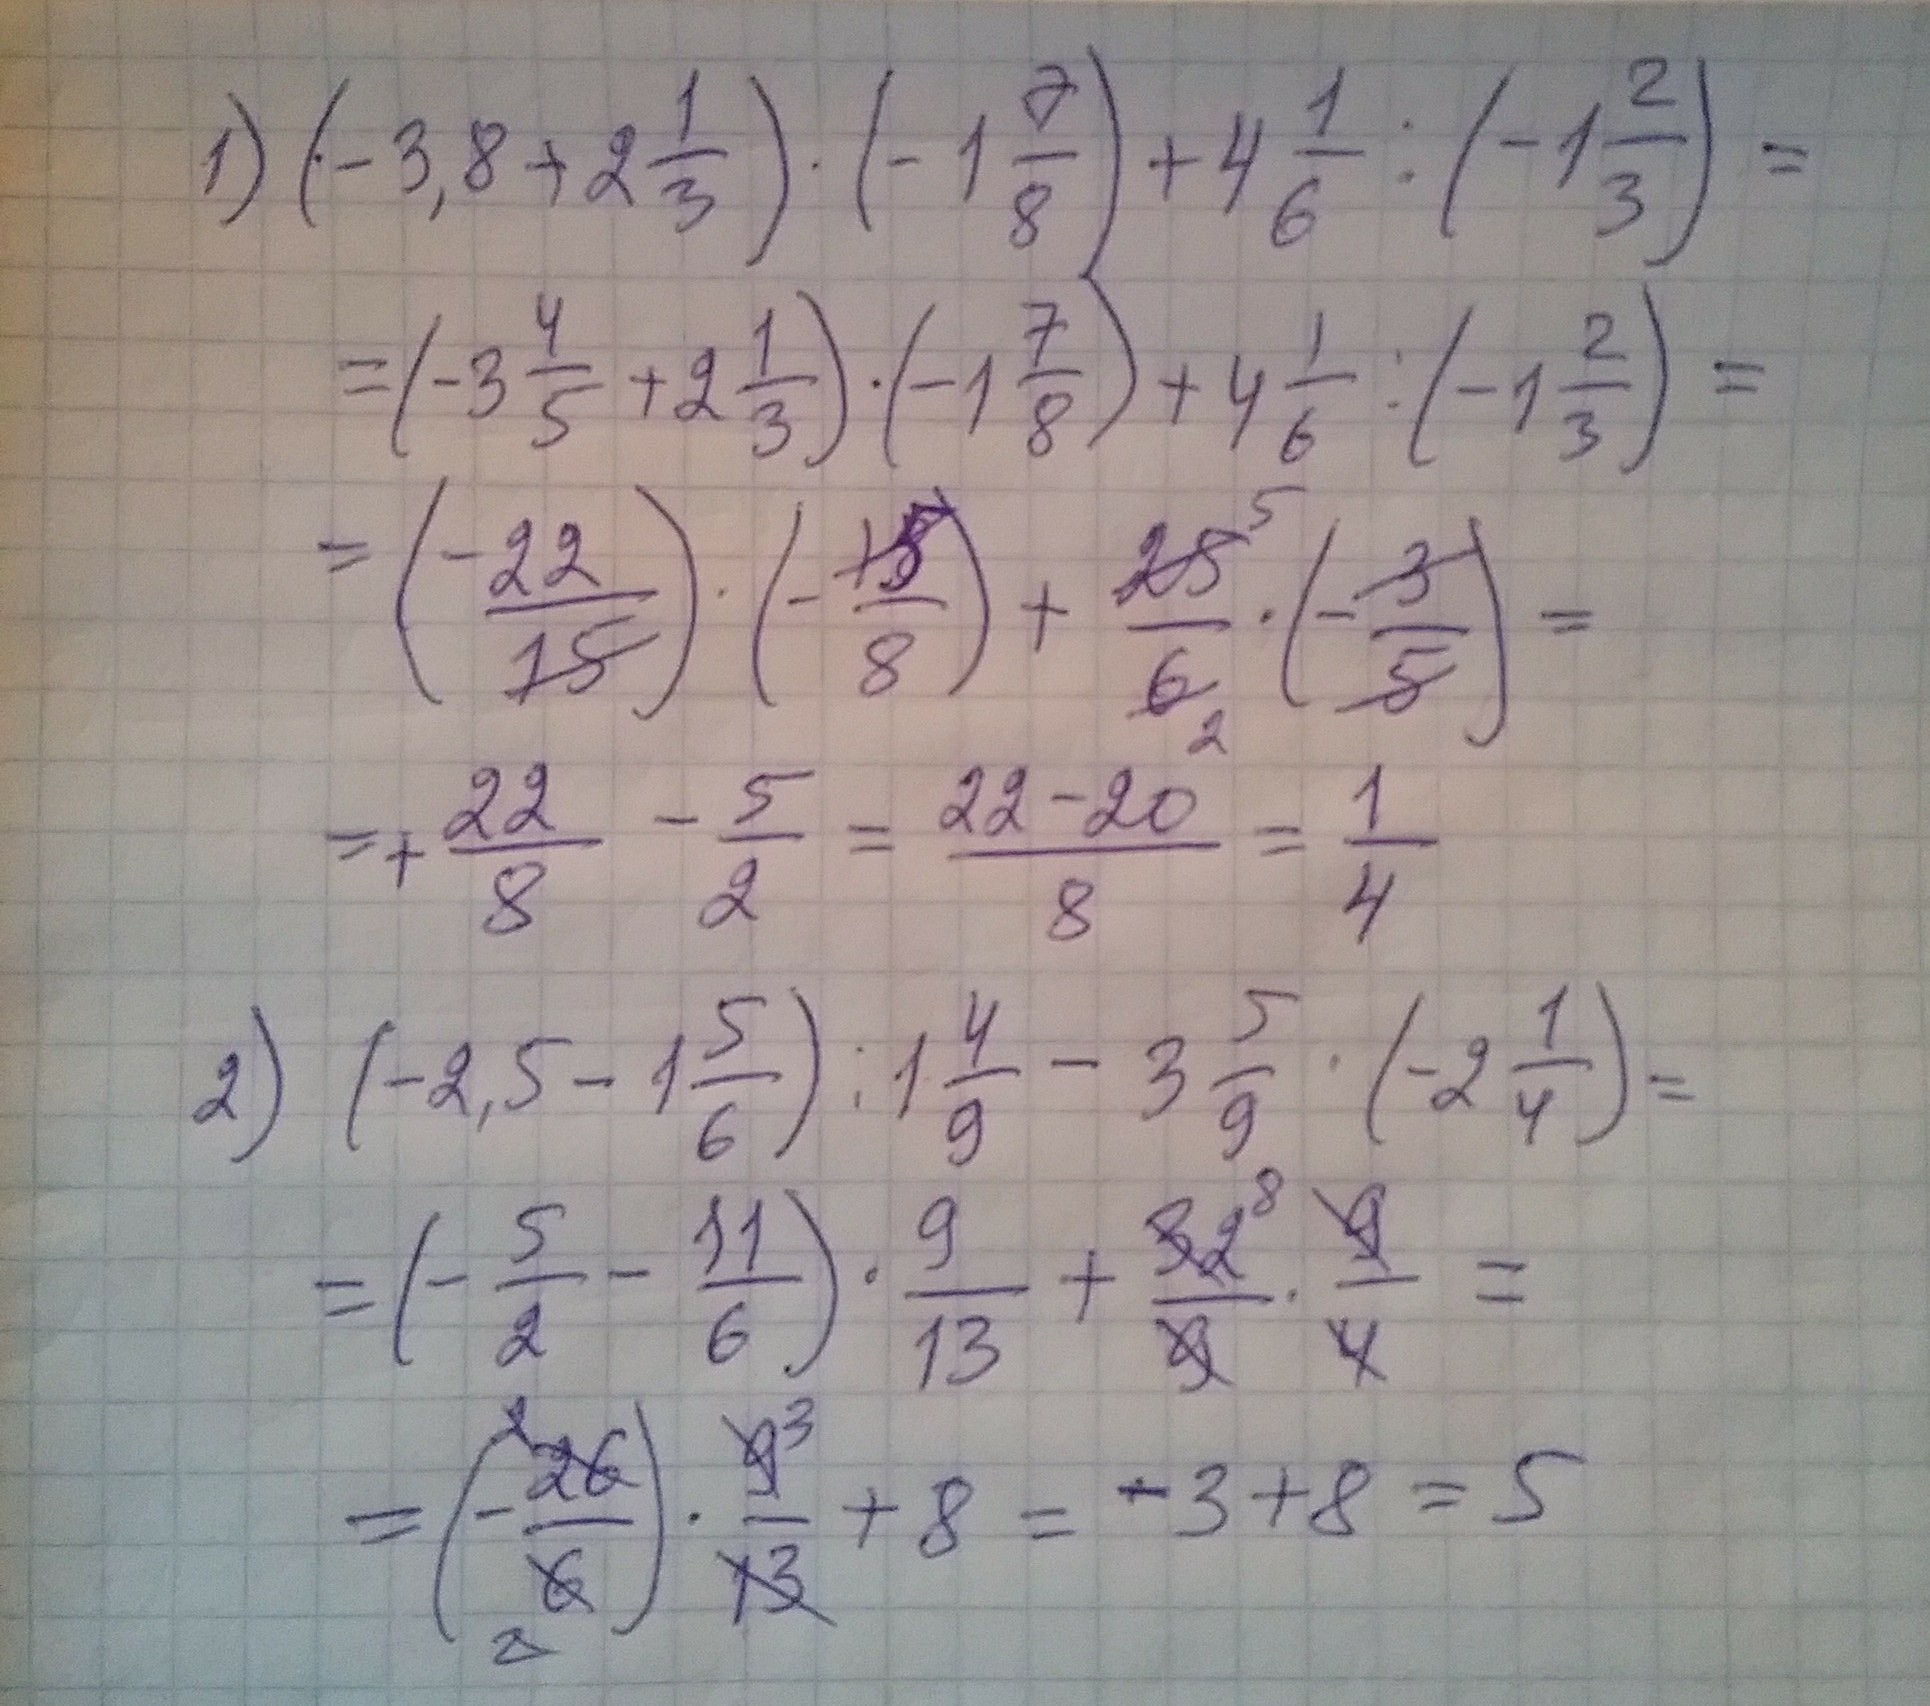 1) (-3,8 + 2 1/3) · (-1 7/8) + 4 1/6 : (-1 2/3) =
= (-3 4/5 + 2 1/3) · (-1 7/8) + 4 1/6 : (-1 2/3) =
= (-22/15) · (-15/8) + 25 5/6 2 · (-3/5) =
= + 22/8 - 5/2 = 22-20/8 = 1/4
2) (-2,5 - 1 5/6) : 1 4/9 - 3 5/9 · (-2 1/4) =
= (-5/2 - 11/6) · 9/13 + 32 8/9 · 9/4 =
= (- 2 26/6 2) · 9 3/13 + 8 = -3 + 8 = 5